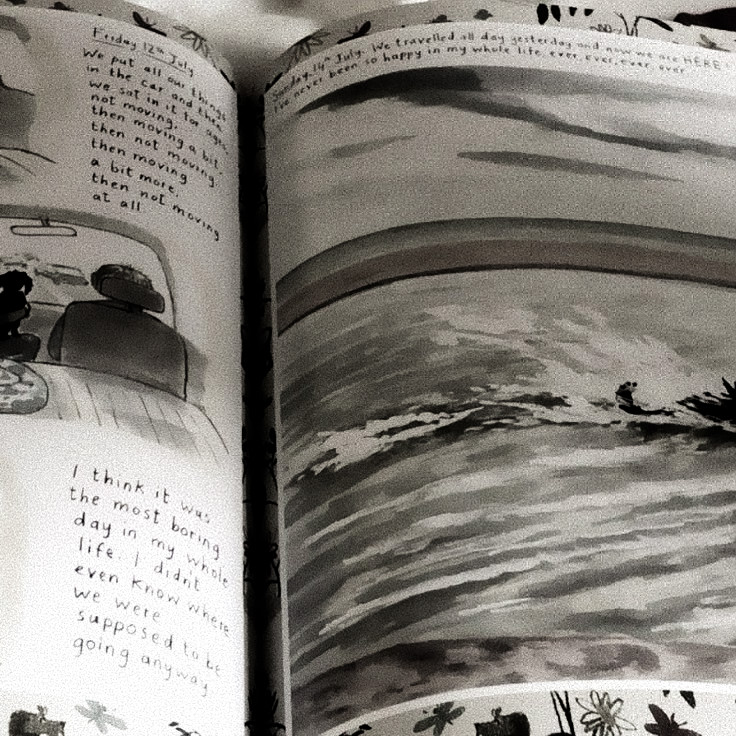 Friday 12th July
We put all our things
in the car and then
we sat in it for ages
not moving,
then moving a bit,
then not moving,
then moving
a bit more,
then not moving
at all
I think it was
the most boring
day in my whole
life. I didn't
even know where
we were
supposed to be
going anyway
Sunday 14th July. We travelled all day yesterday and now we are HERE
I've never been so happy in my whole life ever, ever, ever, ever